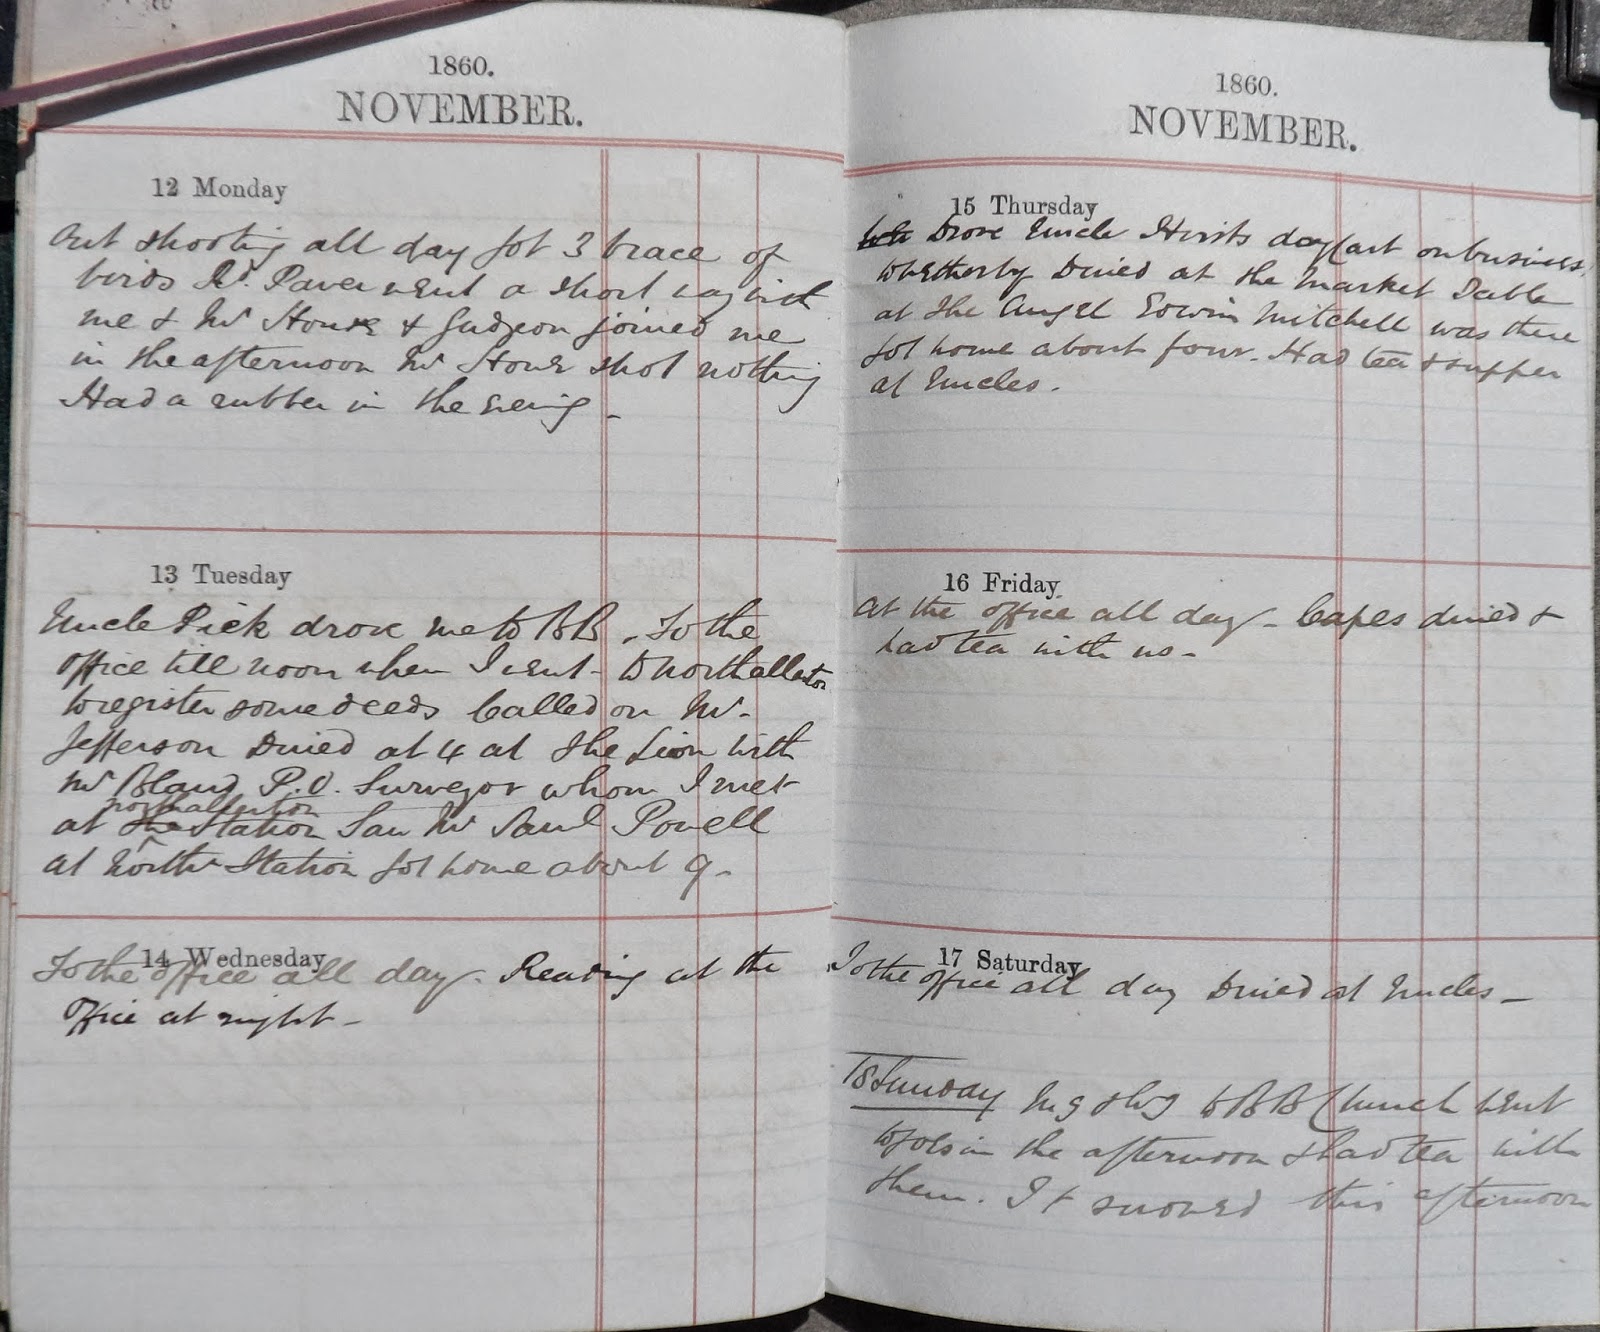 1860.
NOVEMBER.
12 Monday
Out shooting all day Got 3 brace of
birds Rd. Paver went a short way with
me & Mr House & Gudgeon joined me
in the afternoon Mr House shot nothing
Had a rubber in the evening -
13 Tuesday
Uncle Dick drove me to BB. To the
office till noon when I went to Northallerton
to register some deeds Called on Mr.
Jefferson Dined at 4 at the Lion with
Mr Bland P.O. Surveyor whom I met
Northallerton
at the Station Saw Mr Saml Powell
at North Station Got home about 9.
14 Wednesday
To the office all day. Reading at the
office at night -
1860.
NOVEMBER.
15 Thursday
Drove Uncle Hirsts day Cart on business
Whetherby Dined at the Market Table
at the Angel Edwin Mitchell was there
Got home about four. Had tea & supper
at Uncles.
16 Friday
At the office all day - Capes dined &
had tea with us -
17 Saturday
To the office all day Dined at Uncles -
18 Sunday Mg & Evg to BB Church went
to in the afternoon & had tea with
them. It snowed this afternoon